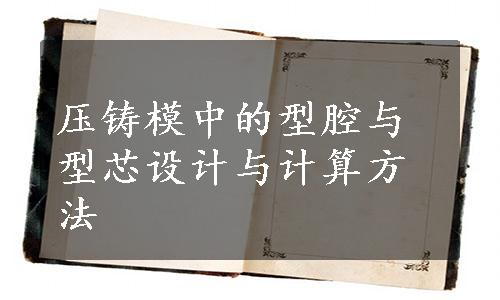 压铸模中的型腔与
型芯设计与计算方
法